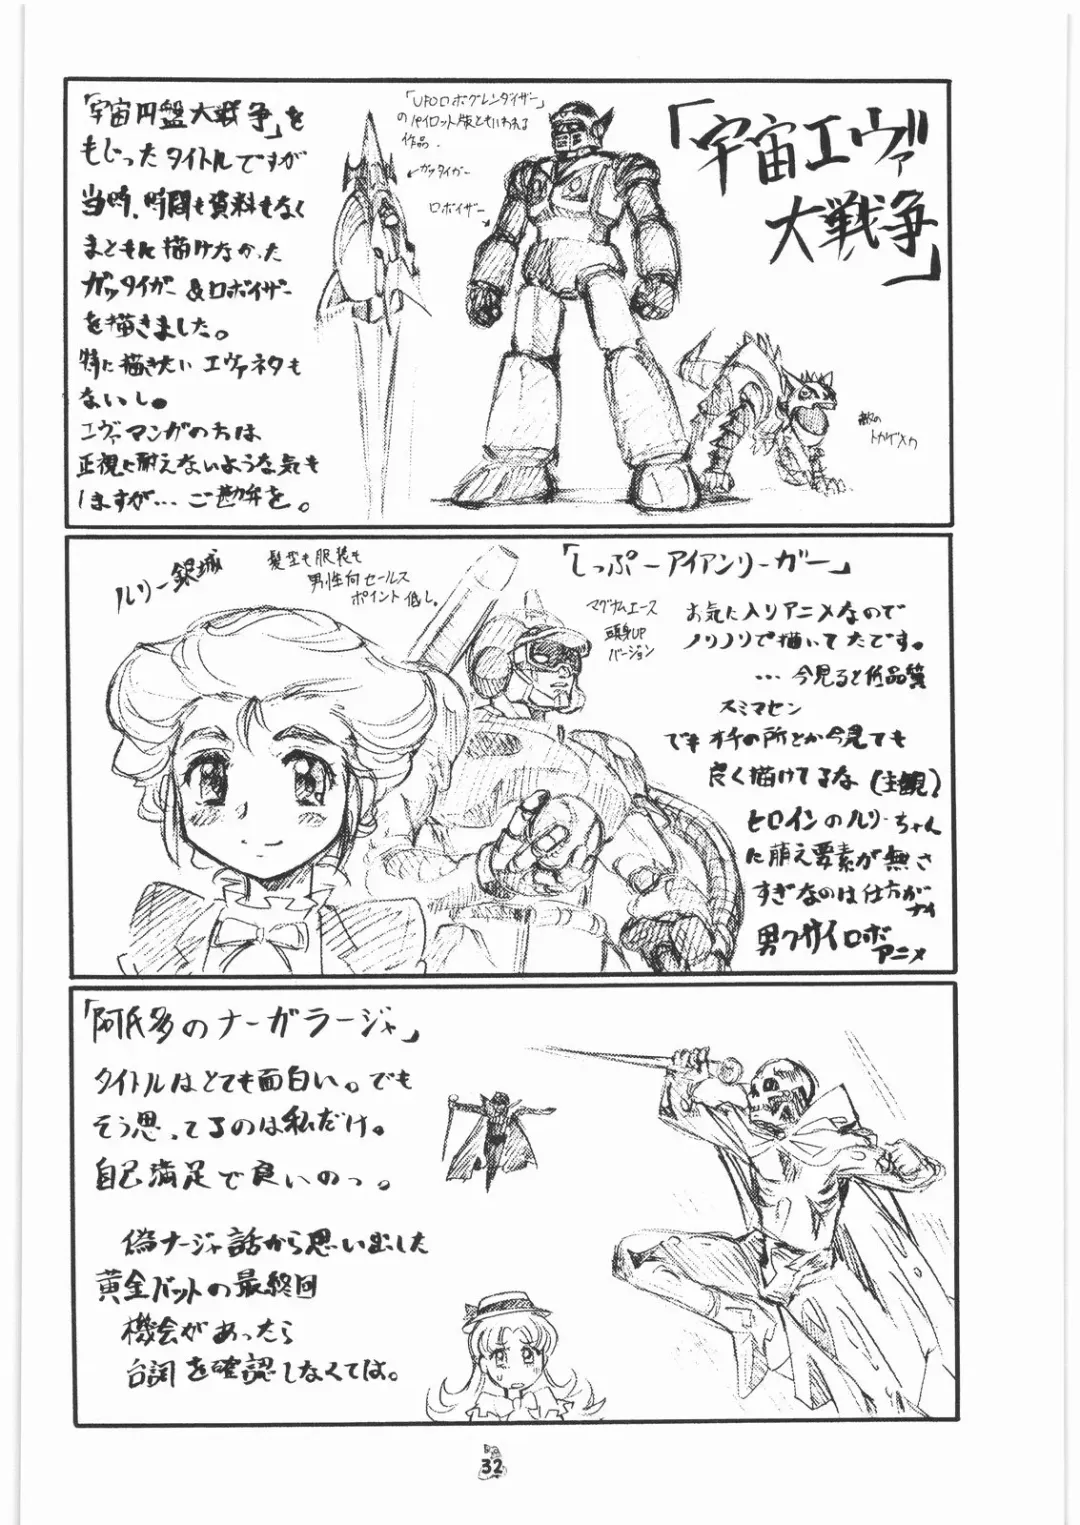 「宇宙エヴァ
大戦争」
「宇宙円盤大戦争」を
もじったタイトルですが
当時、時間も資料もなく
まともに描けなかった
ガッタイガー＆ロボイザー
を描きました。
特に描きたいエヴァネタも
ないし。
エヴァマンガの方は
正視に耐えないような気も
しますが…ご勘弁を。
「UFOロボグレンダイザー」
のパイロット版ともいわれる
作品.
ガッタイガー
ロボイザー
敵の
トカゲメカ
「しっぷーアイアンリーガー」
ルリー銀城
髪型も服装も
男性向セールス
ポイント低し。
マグナムエース
頭身UP
バージョン
お気に入りアニメなので
ノリノリで描いてたです。
…今見ると低品質
スミマセン
でもオチの所とか今見ても
良く描けてるな(主観)
ヒロインのルリーちゃん
に萌え要素が無さ
すぎなのは仕方が
ナイ
男クサイロボ
アニメ
「阿氏多のナーガラージャ」
タイトルはとても面白い。でも
そう思ってるのは私だけ。
自己満足で良いのっ。
偽ナージャ話から思い出した
黄金バットの最終回
機会があったら
台詞を確認しなくては。
32